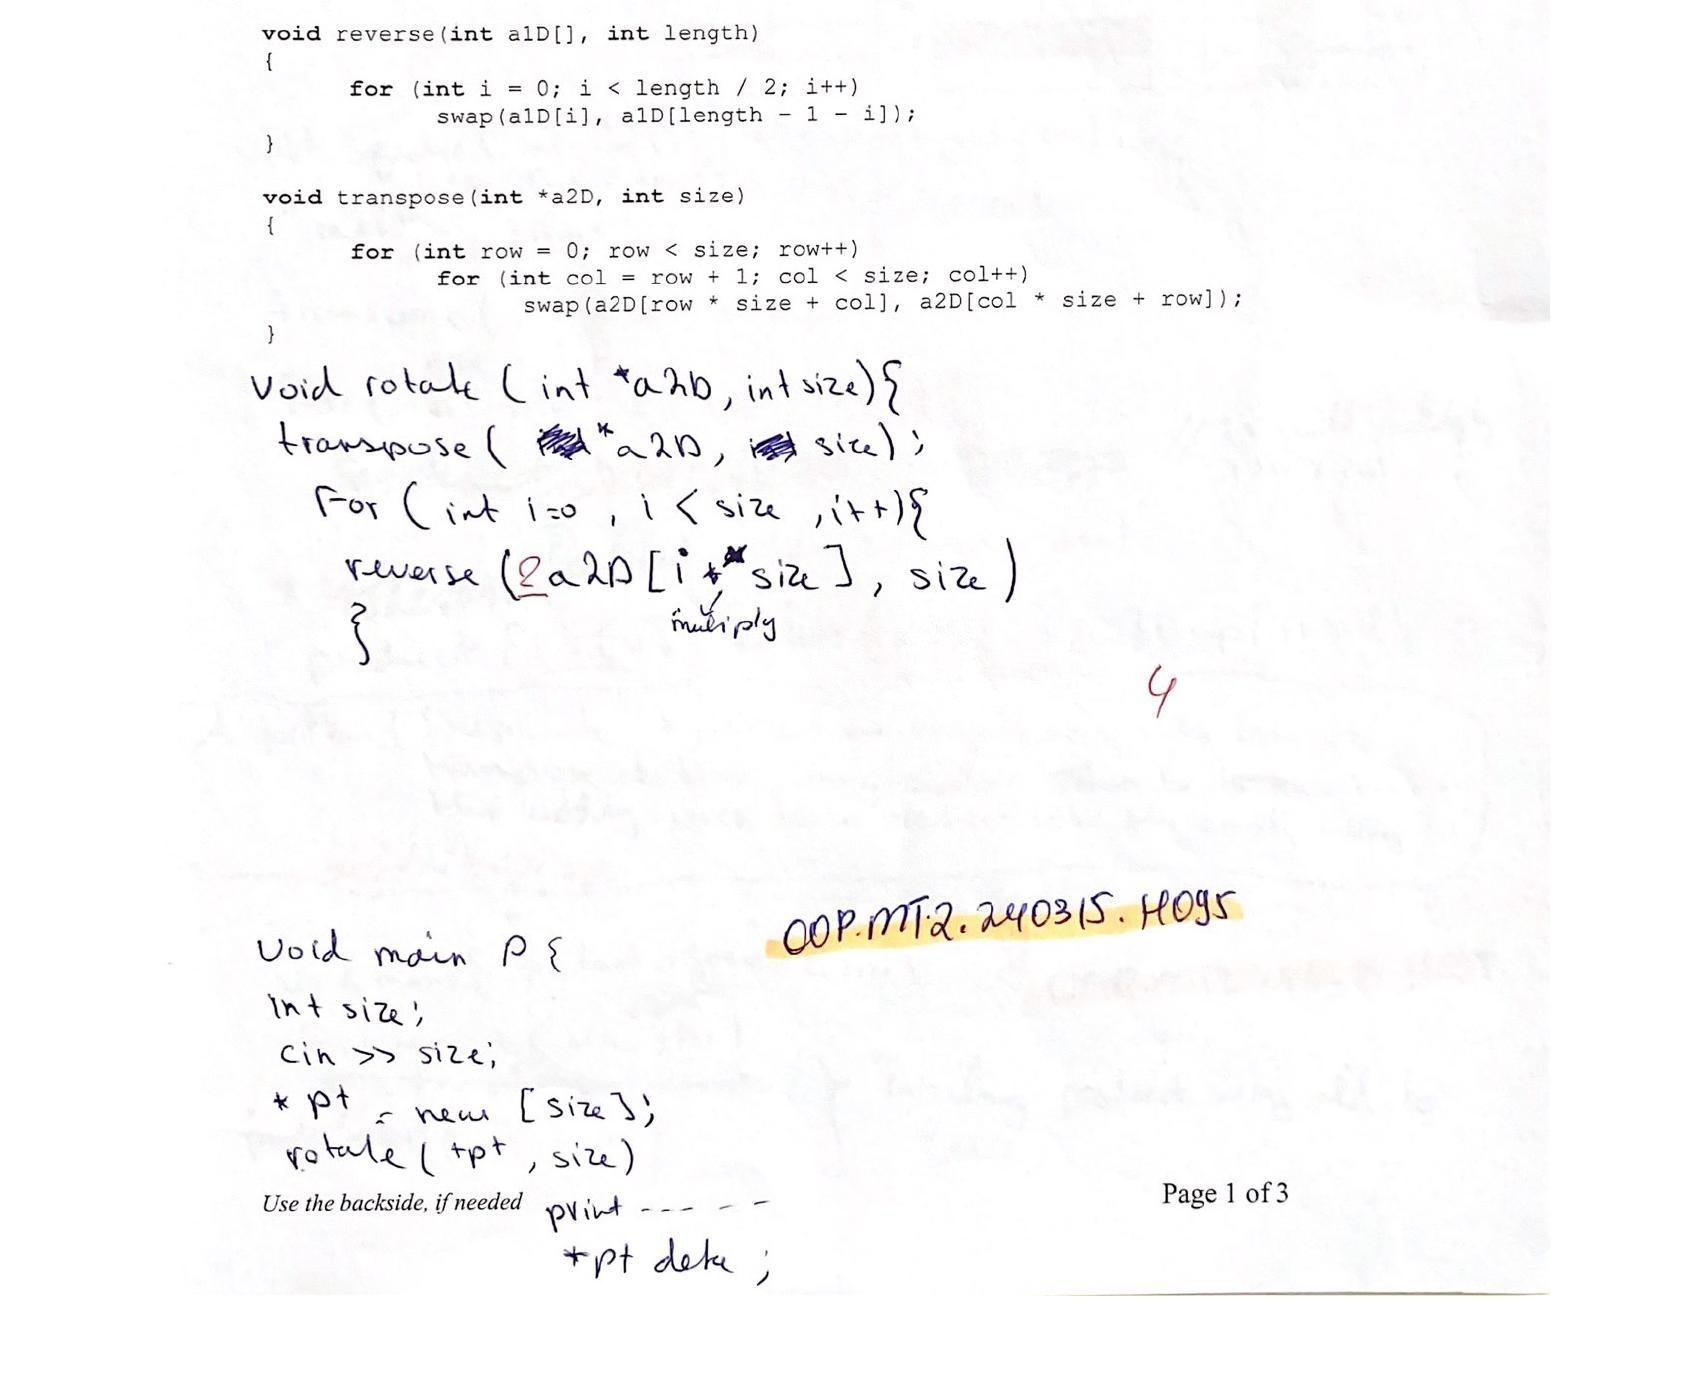 void reverse(int a1D[], int length)
{
for (int i = 0; i < length / 2; i++)
swap(a1D[i], a1D[length - 1 - i]);
}
void transpose(int *a2D, int size)
{
for (int row = 0; row < size; row++)
for (int col = row + 1; col < size; col++)
swap(a2D[row * size + col], a2D[col * size + row]);
}
void rotate (int *a2D, int size){
transpose( *a2D, size);
For ( int i=0 , i < size , i++){
reverse (a2D[i * size], size)
multiply
}
4
OOP.MT2.240315.H095
void main {
int size;
cin >> size;
* pt = new [size];
rotate( *pt , size)
Use the backside, if needed
Page 1 of 3
print --- - -
*pt dete ;